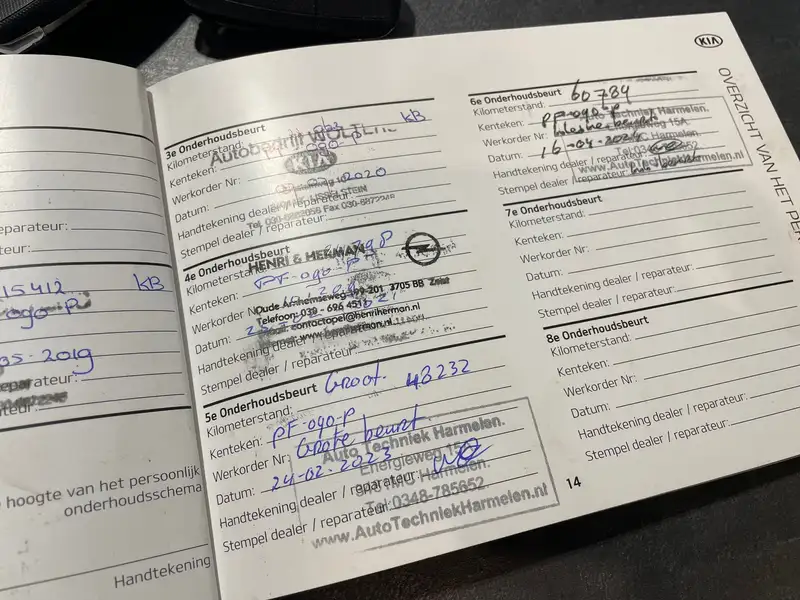 eparateur:
teur:
15412 KB
ogo P
05-2019
eparateur:
teur:
hoogte van het persoonlijk
onderhoudsschema
Handtekening
3e Onderhoudsbeurt
Kilometerstand: KB
Autobedrijf
KIA
Kenteken:
Werkorder Nr:
Datum: 2020
Handtekening dealer / reparateur:
Stempel dealer / reparateur:
4e Onderhoudsbeurt
Kilometerstand:
HENRI & HERMAN
Kenteken: PF-090-P
Werkorder Nr:
Oude Arnhemseweg 199-201 3705 BB Zeist
Telefoon: 030 - 696 4511
Datum:
contactopel@henriherman.nl
www.henriherman.nl
Handtekening dealer / reparateur:
Stempel dealer / reparateur:
5e Onderhoudsbeurt Groot.
Kilometerstand: 48232
Kenteken: PF-090-P
Werkorder Nr: Grote beurt
Datum: 24-02-2023
Handtekening dealer / reparateur:
Stempel dealer / reparateur:
Auto Techniek Harmelen.
Energieweg 15
Harmelen.
Tel:0348-785652
www.AutoTechniekHarmelen.nl
KIA
OVERZICHT VAN HET PER
6e Onderhoudsbeurt
Kilometerstand: 60784
Kenteken: PF-090-P
Werkorder Nr:
Datum: 16-04-2024
Handtekening dealer / reparateur:
Stempel dealer / reparateur:
Techniek Harmelen.
15A
Harmelen.
www.AutoTechniekHarmelen.nl
7e Onderhoudsbeurt
Kilometerstand:
Kenteken:
Werkorder Nr:
Datum:
Handtekening dealer / reparateur:
Stempel dealer / reparateur:
8e Onderhoudsbeurt
Kilometerstand:
Kenteken:
Werkorder Nr:
Datum:
Handtekening dealer / reparateur:
Stempel dealer / reparateur:
14